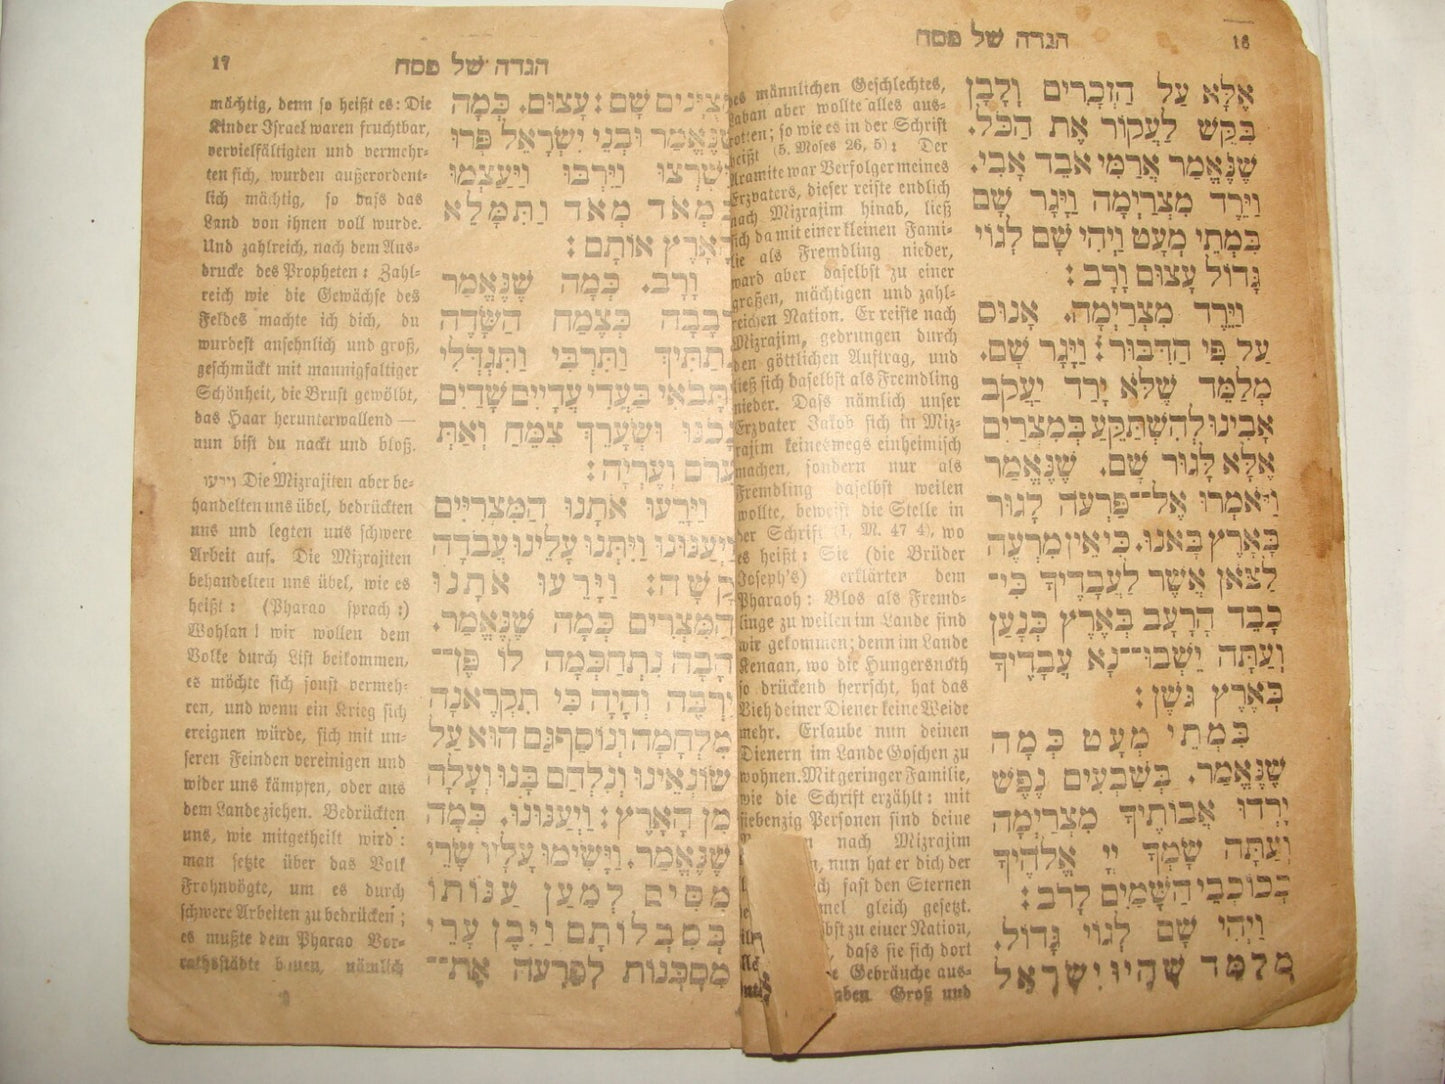 הגדה של פסח 16
אֶלָּא עַל הַזְּכָרִים וְלָבָן
בִּקֵּשׁ לַעֲקוֹר אֶת הַכֹּל.
שֶׁנֶּאֱמַר אֲרַמִּי אֹבֵד אָבִי.
וַיֵּרֶד מִצְרַיְמָה וַיָּגָר שָׁם
בִּמְתֵי מְעָט וַיְהִי שָׁם לְגוֹי
גָּדוֹל עָצוּם וָרָב׃
וַיֵּרֶד מִצְרַיְמָה. אָנוּס
עַל פִּי הַדִּבּוּר׃ וַיָּגָר שָׁם.
מְלַמֵּד שֶׁלֹּא יָרַד יַעֲקֹב
אָבִינוּ לְהִשְׁתַּקֵּעַ בְּמִצְרַיִם
אֶלָּא לָגוּר שָׁם. שֶׁנֶּאֱמַר
וַיֹּאמְרוּ אֶל־פַּרְעֹה לָגוּר
בָּאָרֶץ בָּאנוּ. כִּי אֵין מִרְעֶה
לַצֹּאן אֲשֶׁר לַעֲבָדֶיךָ כִּי־
כָבֵד הָרָעָב בְּאֶרֶץ כְּנָעַן
וְעַתָּה יֵשְׁבוּ־נָא עֲבָדֶיךָ
בְּאֶרֶץ גֹּשֶׁן׃
בִּמְתֵי מְעָט כְּמָה
שֶׁנֶּאֱמַר. בְּשִׁבְעִים נֶפֶשׁ
יָרְדוּ אֲבוֹתֶיךָ מִצְרַיְמָה
וְעַתָּה שָׂמְךָ יְיָ אֱלֹהֶיךָ
כְּכוֹכְבֵי הַשָּׁמַיִם לָרֹב׃
וַיְהִי שָׁם לְגוֹי גָּדוֹל.
מְלַמֵּד שֶׁהָיוּ יִשְׂרָאֵל
des männlichen Geschlechtes,
Laban aber wollte alles aus-
rotten; so wie es in der Schrift
heißt (5. Moses 26, 5): Der
Aramite war Verfolger meines
Erzvaters, dieser reiste endlich
nach Mizrajim hinab, ließ
sich da mit einer kleinen Fami-
lie als Fremdling nieder,
ward aber daselbst zu einer
großen, mächtigen und zahl-
reichen Nation. Er reiste nach
Mizrajim, gedrungen durch
den göttlichen Auftrag, und
ließ sich daselbst als Fremdling
nieder. Daß nämlich unser
Erzvater Jakob sich in Miz-
rajim keineswegs einheimisch
machen, sondern nur als
Fremdling daselbst weilen
wollte, beweist die Stelle in
der Schrift (1. M. 47 4), wo
es heißt: Sie (die Brüder
Joseph's) erklärten dem
Pharaoh: Blos als Fremd-
linge zu weilen im Lande sind
wir gekommen; denn im Lande
Kenaan, wo die Hungersnoth
so drückend herrscht, hat das
Vieh deiner Diener keine Weide
mehr. Erlaube nun deinen
Dienern im Lande Goschen zu
wohnen. Mit geringer Familie,
wie die Schrift erzählt: mit
siebenzig Personen sind deine
nach Mizrajim
nun hat er dich der
fast den Sternen
gleich gesetzt.
zu einer Nation,
dass sie sich dort
Gebräuche aus-
Groß und
17 הגדה של פסח
מְצֻיָּנִים שָׁם׃ עָצוּם. כְּמָה
שֶׁנֶּאֱמַר וּבְנֵי יִשְׂרָאֵל פָּרוּ
וַיִּשְׁרְצוּ וַיִּרְבּוּ וַיַּעַצְמוּ
בִּמְאֹד מְאֹד וַתִּמָּלֵא
הָאָרֶץ אוֹתָם׃
וָרָב. כְּמָה שֶׁנֶּאֱמַר
רְבָבָה כְּצֶמַח הַשָּׂדֶה
נְתַתִּיךְ וַתִּרְבִּי וַתִּגְדְּלִי
וַתָּבֹאִי בַּעֲדִי עֲדָיִים שָׁדַיִם
נָכֹנוּ וּשְׂעָרֵךְ צִמֵּחַ וְאַתְּ
עֵרֹם וְעֶרְיָה׃
וַיָּרֵעוּ אֹתָנוּ הַמִּצְרִיִּים
וַיְעַנּוּנוּ וַיִּתְּנוּ עָלֵינוּ עֲבֹדָה
קָשָׁה׃ וַיָּרֵעוּ אֹתָנוּ
הַמִּצְרִים כְּמָה שֶׁנֶּאֱמַר.
הָבָה נִתְחַכְּמָה לוֹ פֶּן־
יִרְבֶּה וְהָיָה כִּי תִקְרֶאנָה
מִלְחָמָה וְנוֹסַף גַּם הוּא עַל
שׂוֹנְאֵינוּ וְנִלְחַם בָּנוּ וְעָלָה
מִן הָאָרֶץ׃ וַיְעַנּוּנוּ. כְּמָה
שֶׁנֶּאֱמַר. וַיָּשִׂימוּ עָלָיו שָׂרֵי
מִסִּים לְמַעַן עַנּוֹתוֹ
בְּסִבְלוֹתָם וַיִּבֶן עָרֵי
מִסְכְּנוֹת לְפַרְעֹה אֶת־
mächtig, denn so heißt es: Die
Kinder Israel waren fruchtbar,
vervielfältigten und vermehr-
ten sich, wurden außerordent-
lich mächtig, so daß das
Land von ihnen voll wurde.
Und zahlreich, nach dem Aus-
drucke des Propheten: Zahl-
reich wie die Gewächse des
Feldes machte ich dich, du
wurdest ansehnlich und groß,
geschmückt mit mannigfaltiger
Schönheit, die Brust gewölbt,
das Haar herunterwallend —
nun bist du nackt und bloß.
וירעו Die Mizrajiten aber be-
handelten uns übel, bedrückten
uns und legten uns schwere
Arbeit auf. Die Mizrajiten
behandelten uns übel, wie es
heißt: (Pharao sprach:)
Wohlan! wir wollen dem
Volke durch List beikommen,
es möchte sich sonst vermeh-
ren, und wenn ein Krieg sich
ereignen würde, sich mit un-
seren Feinden vereinigen und
wider uns kämpfen, oder aus
dem Lande ziehen. Bedrückten
uns, wie mitgetheilt wird:
man setzte über das Volk
Frohnvögte, um es durch
schwere Arbeiten zu bedrücken;
es mußte dem Pharao Vor-
rathsstädte bauen, nämlich